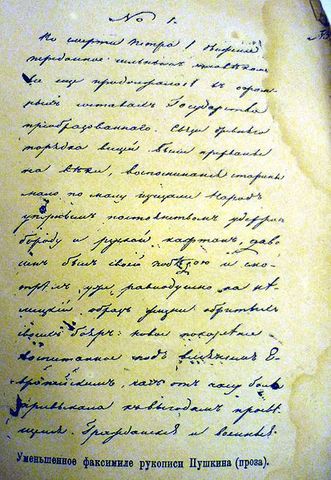 No 1.
По смерти Петра I движенie
переданное сильнымъ человѣкомъ
все еще продолжалось въ огром
ныхъ составахъ Государства
преобразованнаго. Связи древняго
порядка вещей были прерваны
на вѣки, воспоминанiя старины
мало по малу исчезали Народъ
упорнымъ постоянствомъ удержавъ
бороду и русскiй кафтанъ, дово
ленъ былъ своей побѣдою и смо
трѣлъ уже равнодушно на нѣ
мецкiй образъ жизни обритыхъ
своихъ бояръ: новое поколѣнiе
воспитанное подъ влiянiемъ Е
вропейскимъ, часъ отъ часу болѣе
привыкало къ выгодамъ просвѣ
щенiя Гражданскiе и военные
Уменьшенное факсимиле рукописи Пушкина (проза).